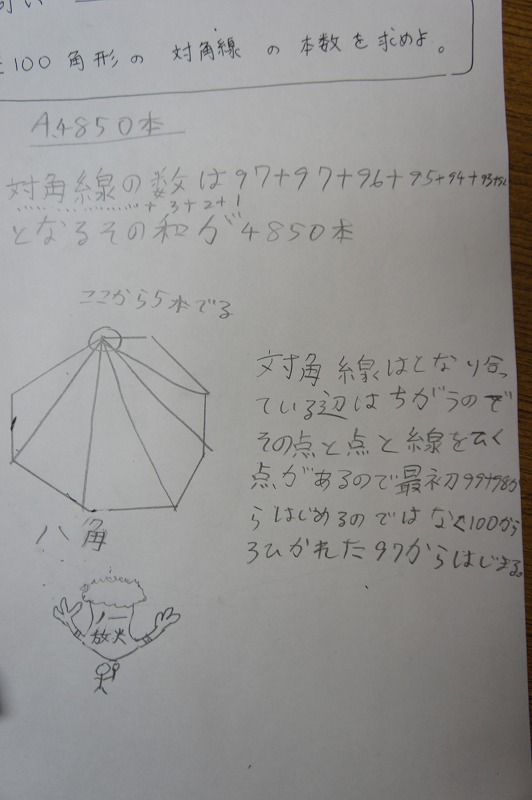 100角形の対角線の本数を求めよ。
A.4850本
対角線の数は97+97+96+95+94+93+92
+3+2+1
となるその和が4850本
ここから5本でる
対角線はとなり合っ
ている辺はちがうので
その点と点と線をひく
点があるので最初99+98か
らはじめるのではなく100から
3ひかれた97からはじまる。
八角
ノー
放火